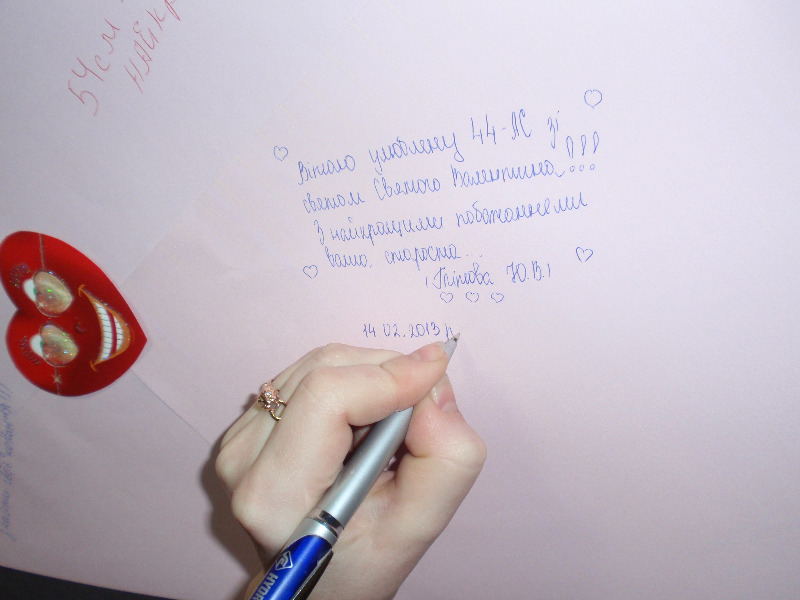 54см
НАЙКР
Вітаю улюблену 44-АС зі
святом Святого Валентина!!!
З найкращими побажаннями
ваша староста...
Ю.В.)
14 02.2013 р
HYDR